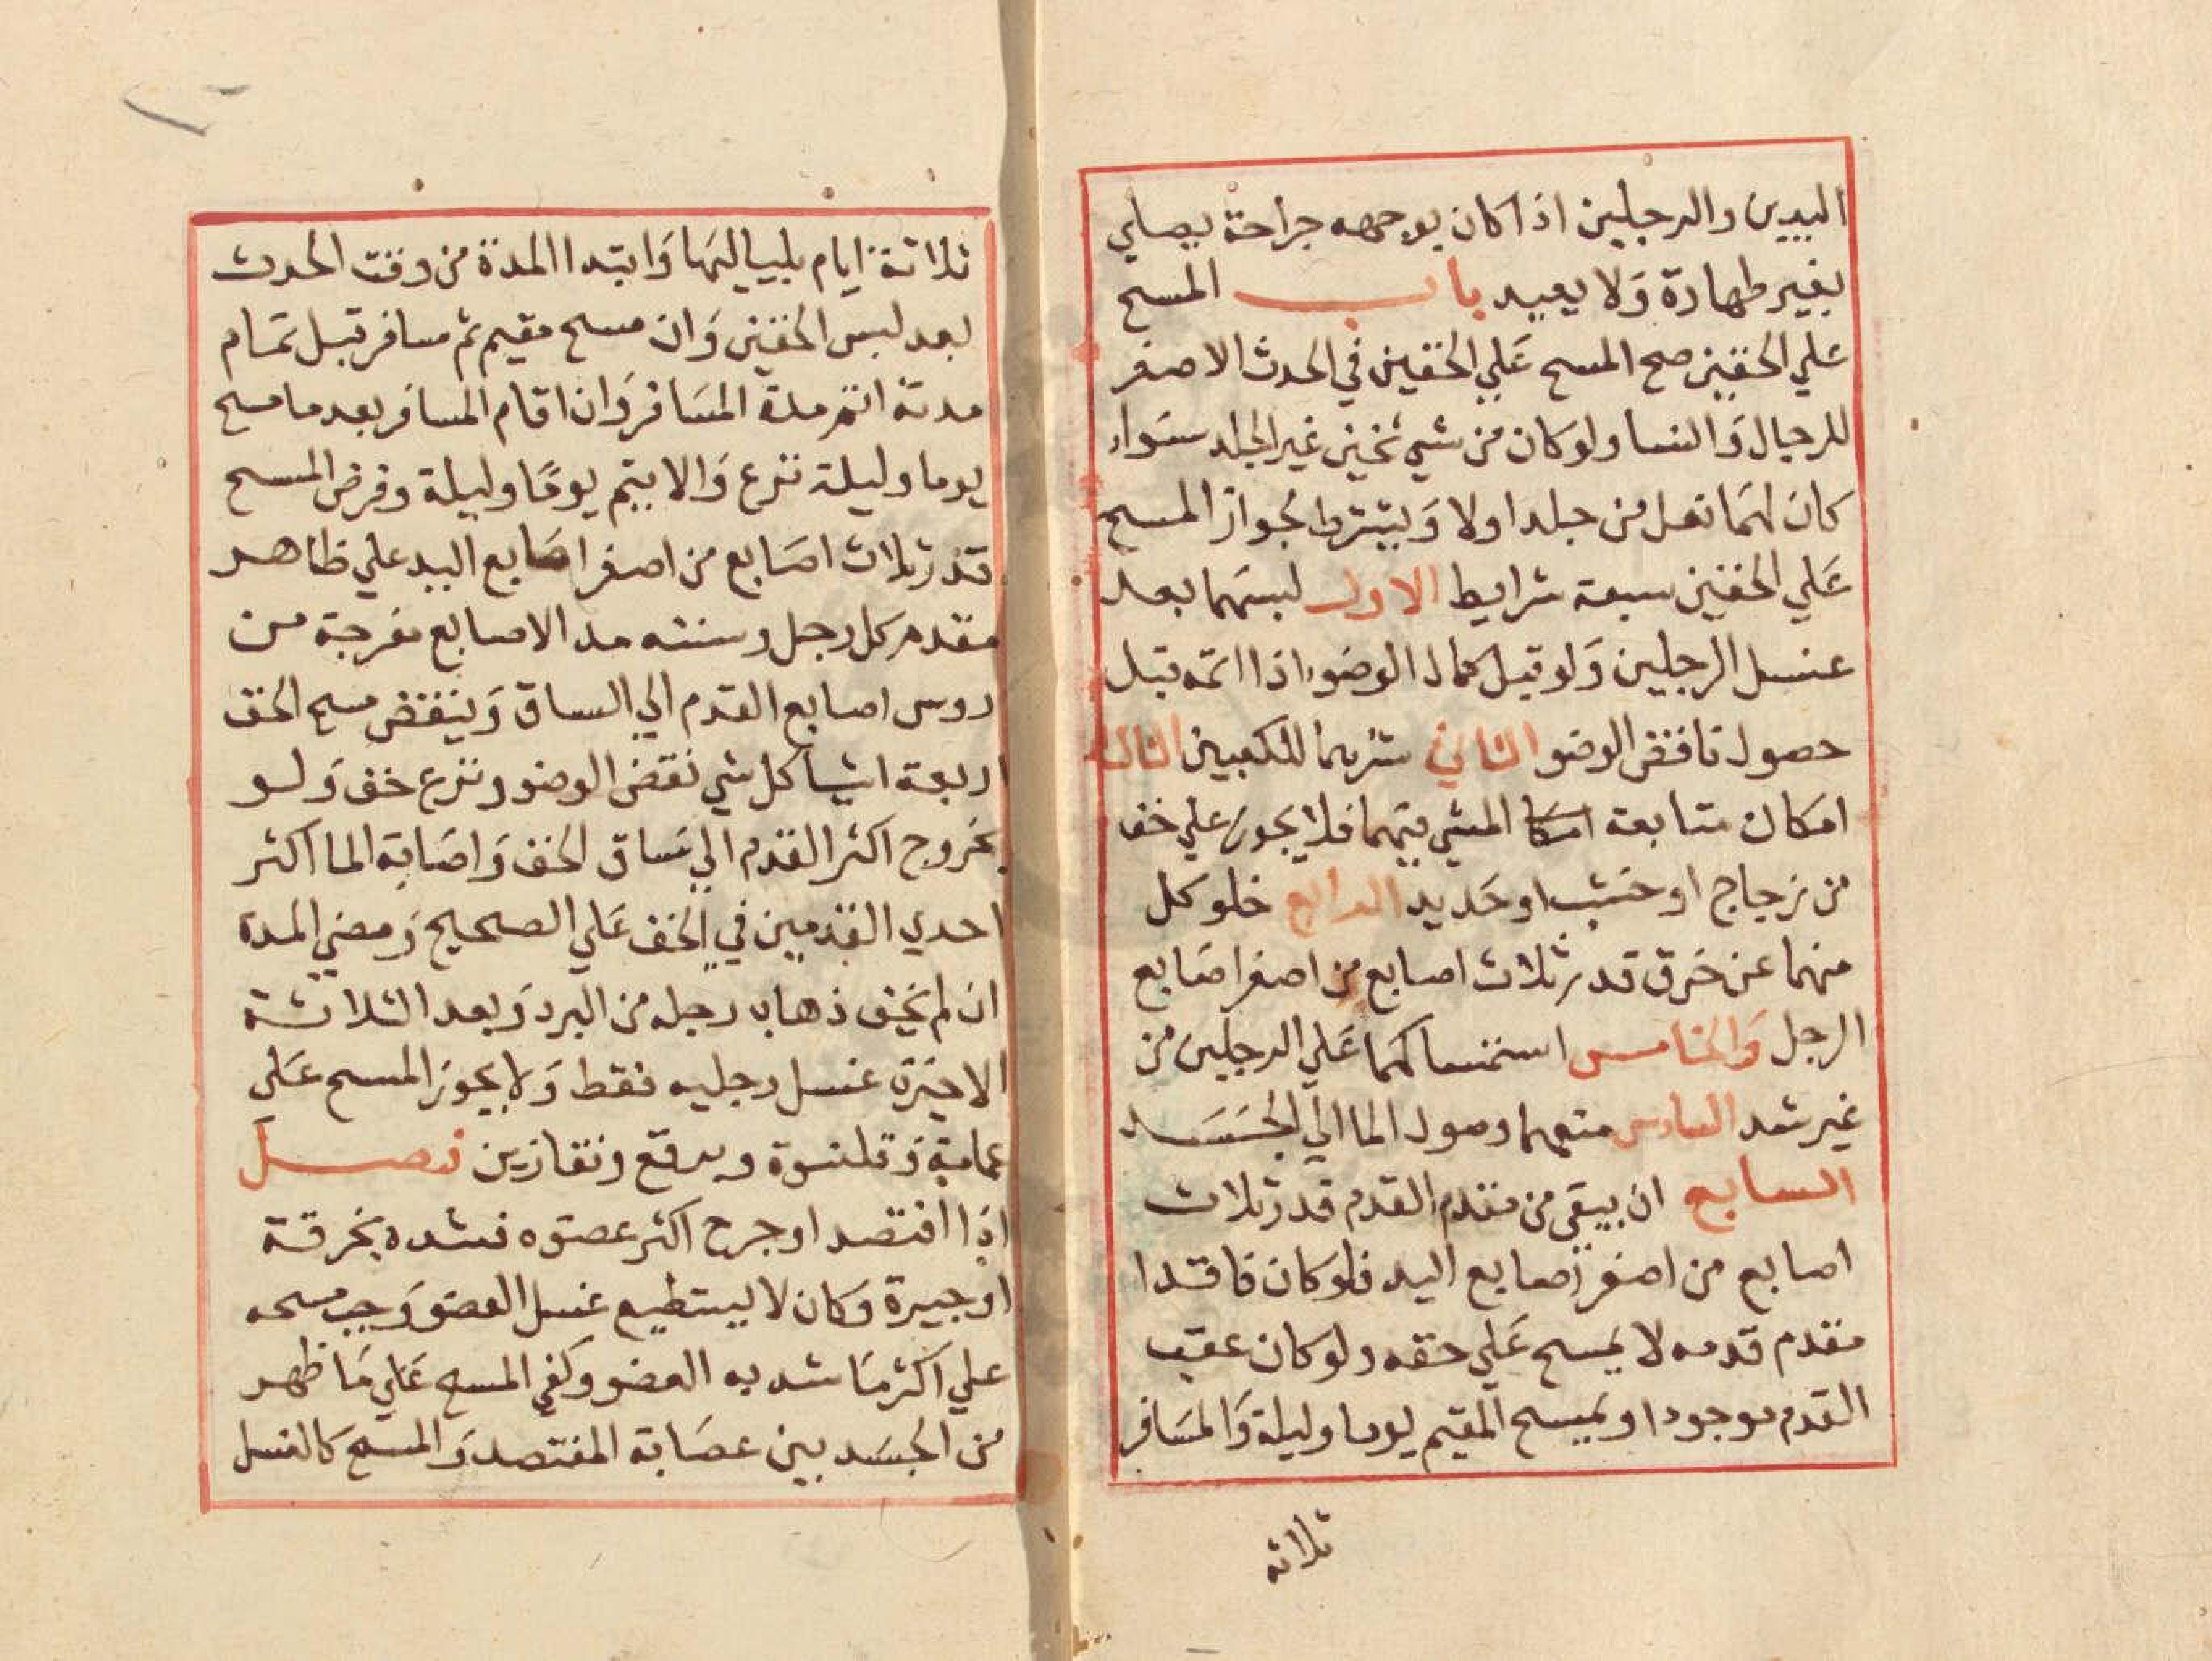 اليدين والرجلين اذا كان بوجهه جراحة يصلي
بغير طهارة وَلا يعيد باب المسح
علي الخفين صح المسح عَلي الخفين في الحدث الاصغر
للرجال وَالنسا ولو كان من شي ثخين غير الجلد سَواء
كانَ لهمَا نعل من جلد اولا وَيشترط لجواز المسح
عَلي الخفين سبعة شرايط الاول لبسهَما بعد
غسل الرجلين وَلو قبل كمال الوضوء اذا اتمه قبل
حصول ناقض الوضو الثاني سترهما للكعبين الثالث
امكان متابعة امكا المشي فيهما فلا يجوز علي خف
من زجاج او خشب او حَديد الرابع خلو كل
منهما عن خرق قدر ثلاث اصابع من اصغر اصَابع
الرجل وَالخامس استمساكهما عَلي الرجلين من
غير شد السادس منعهما وصول الما الي الجَسَد
السابع ان يبقي من مقدم القدم قدر ثلاث
اصابع من اصغر اصابع اليد فلو كان فاقدا
مقدم قدمه لا يمسح عَلي خفه ولو كان عقب
القدم موجودا ويمسح المقيم يوما وليلة وَالمسَافر
ثلاثه
ثلاثة ايام بلياليهَا وَابتدا المدة من وقت الحدث
بعد لبس الخفين وَان مسح مقيم ثم سافر قبل تمَام
مدته اتم مدة المسَافر وَان اقام المسافر بعد ما مسح
يوما وليلة نزع وَالا يتم يومًا وليلة وفرض المسح
قدر ثلاث اصَابع من اصغر اصَابع اليد علي ظاهر
مقدم كل رجل وسننه مد الاصابع مفرجة من
روس اصابع القدم الي الساق وَينقض مسح الخف
اربعة اشيا كل شي نقض الوضو ونزع خف وَلو
بخروج اكثر القدم الي سَاق الخف وَاصَابة الما اكثر
احدي القدمين في الخف عَلي الصحيح وَمضي المدة
ان لم يخف ذهاب رجله من البرد وَبعد الثلاثة
الاخيرة غسل رجليه فقط وَلا يجوز المسح عَلي
عمامة وَقلنسوة وبرقع وقفازين فصل
اذا افتصد او جرح اكثر عضوه فشده بخرقة
او جبيرة وَكان لا يستطيع غسل العضو وَجب مسحه
علي اكثر مَا شد به العضو وكفي المسح عَلي مَا ظهر
من الجسَد بين عصَابة المفتصد وَالمسح كَالغسل